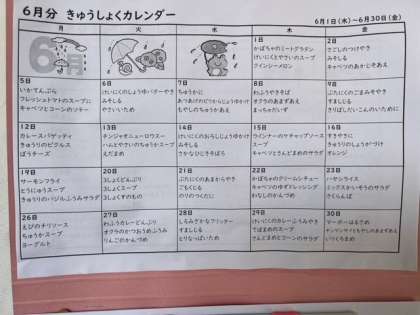 6月分 きゅうしょくカレンダー
6月1日(木)～6月30日(金)
月 火 水 木 金
6月
1日
かぼちゃのミートグラタン
けいにくとやさいのスープ
クインシーメロン
2日
さごしのつけやき
みそしる
キャベツのあかじそあえ
5日
いかてんぷら
フレッシュトマトのスープに
キャベツとコーンのソテー
6日
けいにくのしょうゆバターやき
みそしる
やさいいため
7日
ちゅうかに
あつあげのピリからじょうゆかけ
もやしのちゅうかあえ
8日
わふうやきそば
オクラのあまずあえ
まっちゃだいず
9日
ぶたにくのごまみそやき
すましじる
きりぼしだいこんのいために
12日
カレースパゲッティ
きゅうりのピクルス
ぽうチーズ
13日
チンジャオニューロウスー
はるとやさいのちゅうかスープ
えだまめ
14日
けいにくのおろしじょうゆかけ
みそしる
さかなひじきそぼろ
15日
ウインナーのケチャップソース
スープ
キャベツとさんどまめのサラダ
16日
すきやきに
きゅうりのしょうがづけ
オレンジ
19日
サーモンフライ
とうにゅうスープ
きゅうりのバジルふうみサラダ
20日
3しょくどんぶり
3しょくスープ
3しょくすのもの
21日
ぶたにくのあまからやき
ごもくじる
のりのつくだに
22日
かぼちゃのクリームシチュー
キャベツのゆずドレッシング
わなしのかんづめ
23日
ハヤシライス
ミックスかいそうのサラダ
さくらんぼ
26日
えびのチリソース
ちゅうかスープ
ヨーグルト
27日
わふうカレーどんぶり
オクラのかつおぶしふうみ
りんごのかんづめ
28日
しろみざかなフリッター
すましじる
とりなっぱいため
29日
けいにくのカレーふうみやき
てぼまめのスープ
さんどまめとコーンのサラダ
30日
マーボーはるさめ
いりくろまめ